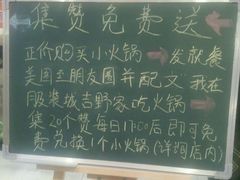 集赞免费送
正价购买小火锅 发献餐
美图至朋友圈并配文"我在
服装城吉野家吃火锅
集20个赞每日17:00后即可免
费兑换1个小火锅(详询店内)